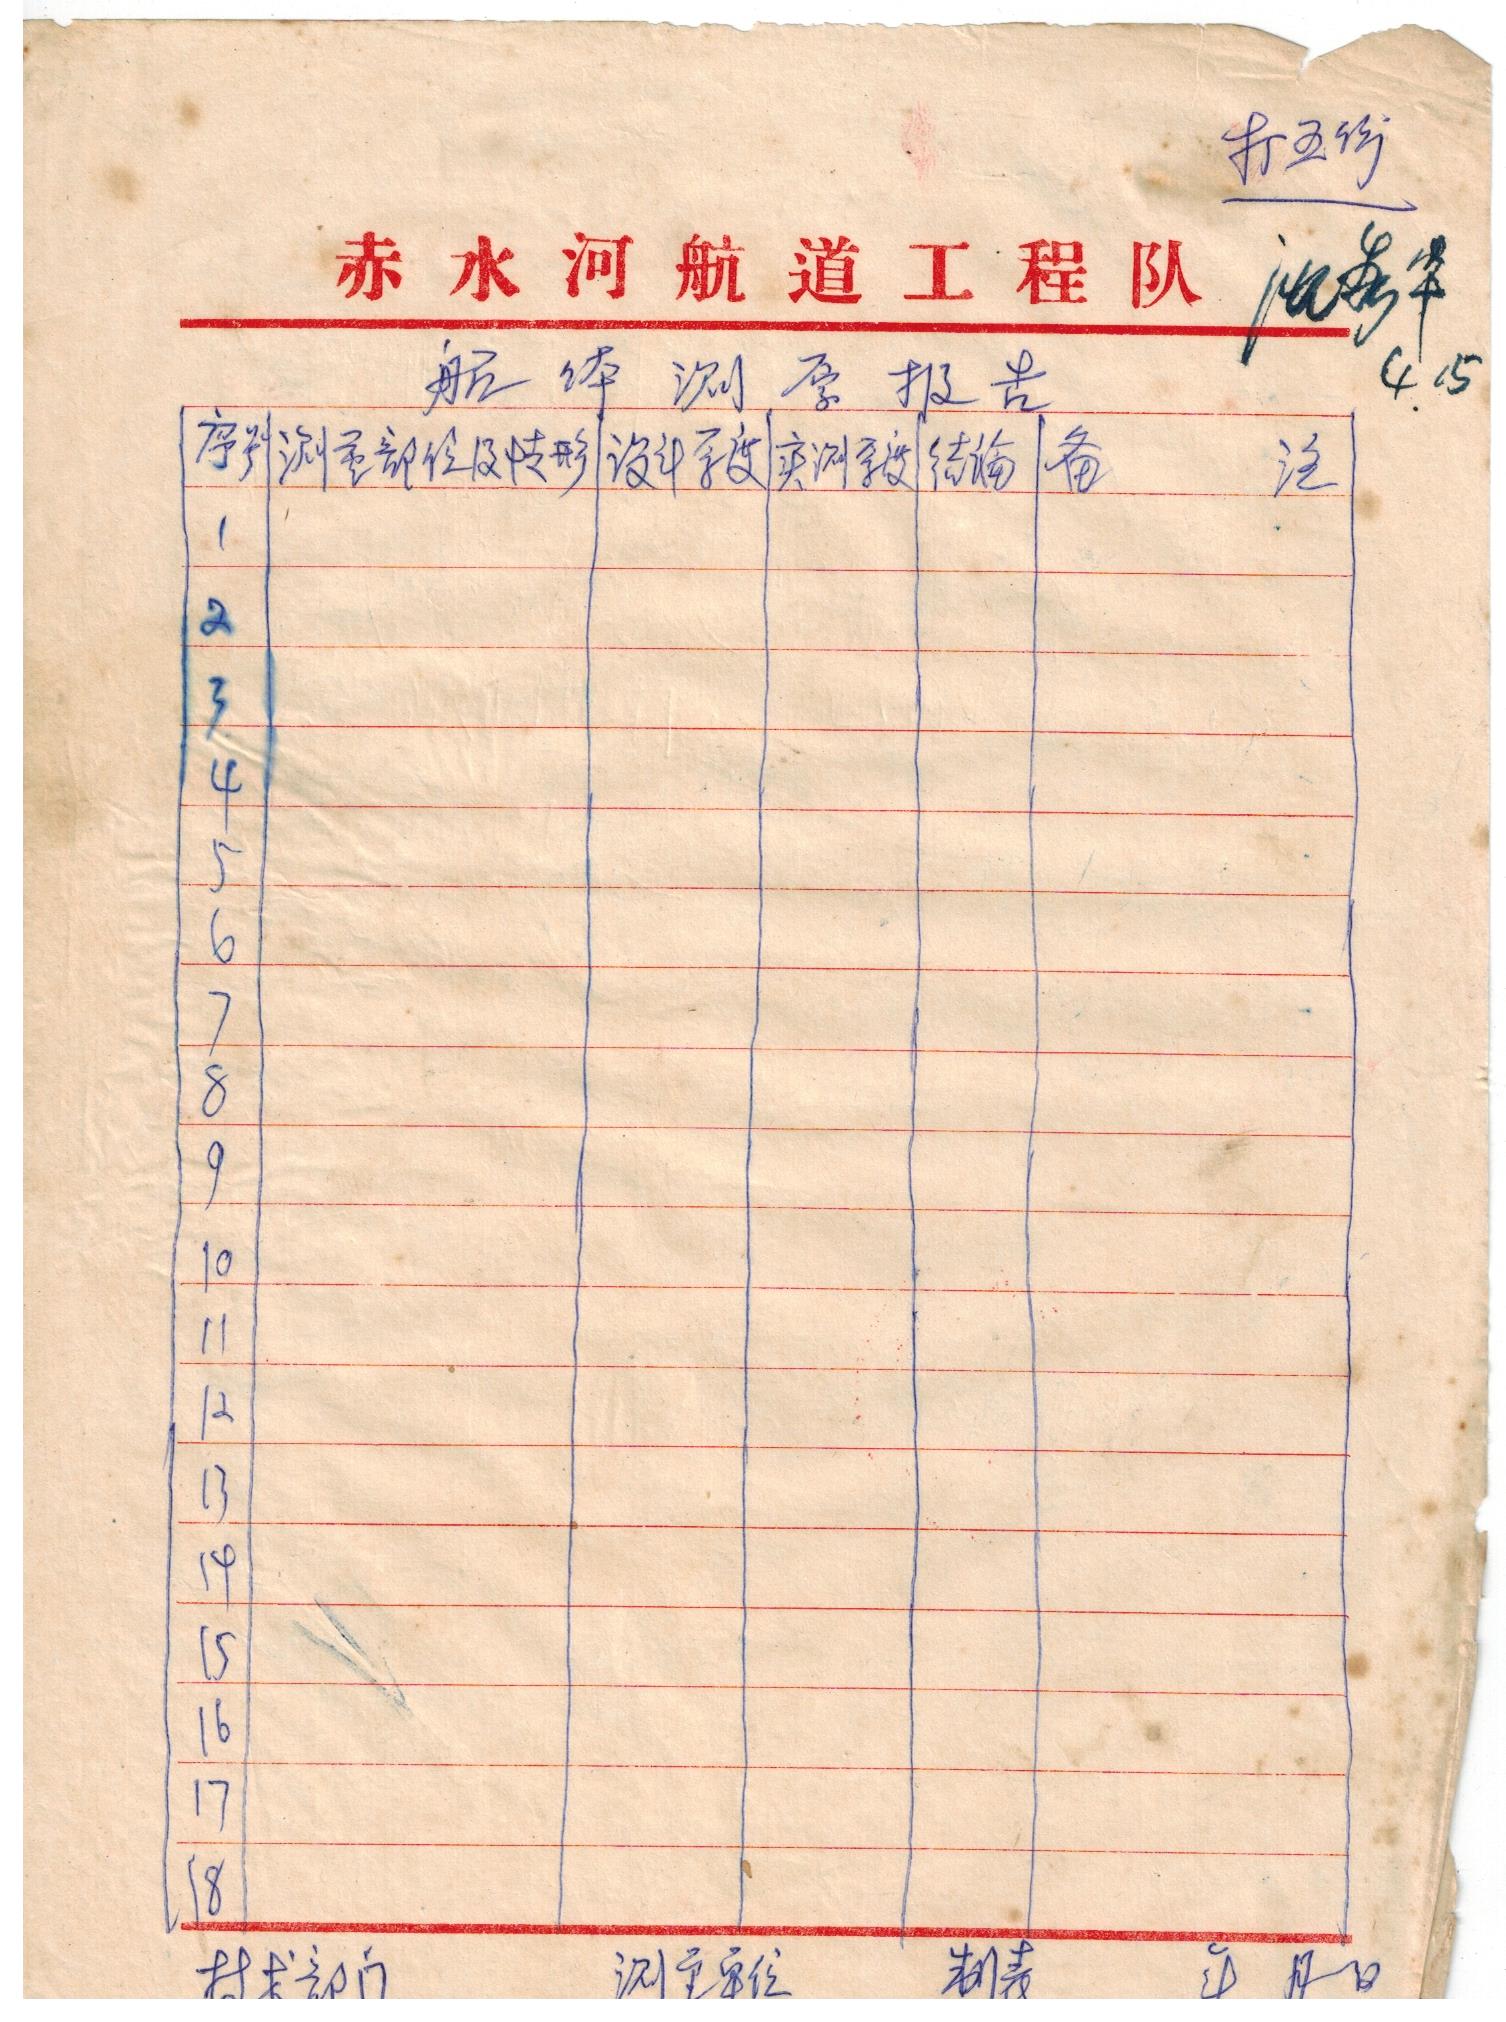 打五份
赤水河航道工程队
4.15
船体测厚报告
序号 测量部位及情形 设计厚度 实测厚度 结论 备注
1
2
3
4
5
6
7
8
9
10
11
12
13
14
15
16
17
18
技术部门 测量单位 制表 年 月 日